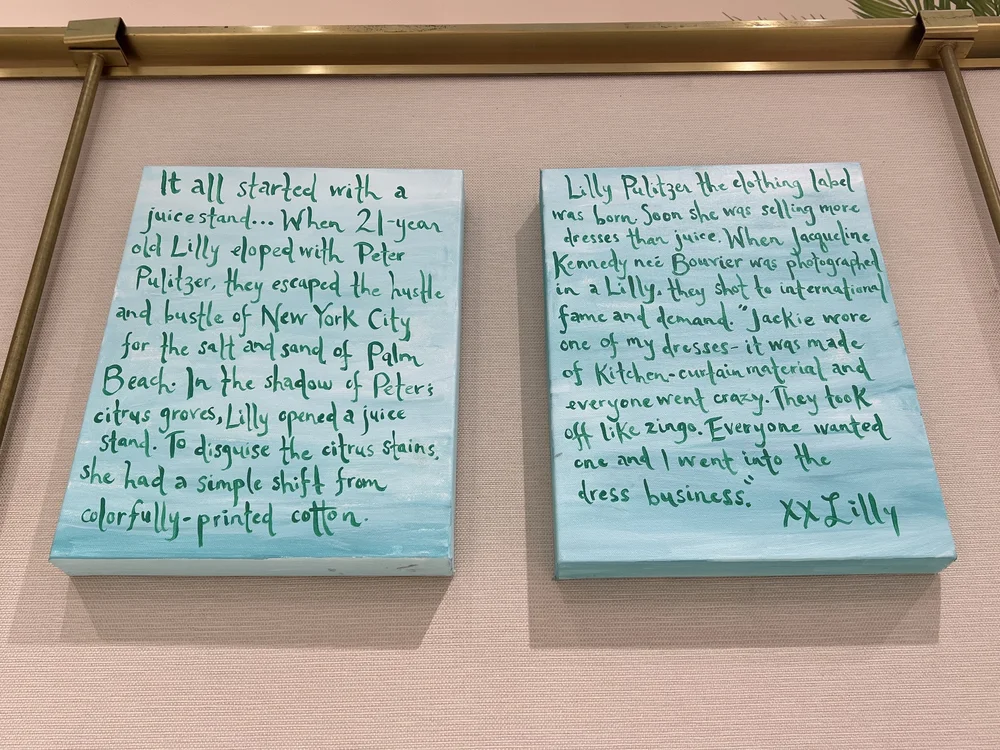 It all started with a
juice stand... When 21-year
old Lilly eloped with Peter
Pulitzer, they escaped the hustle
and bustle of New York City
for the salt and sand of Palm
Beach. In the shadow of Peter's
citrus groves, Lilly opened a juice
stand. To disguise the citrus stains,
she had a simple shift from
colorfully-printed cotton.
Lilly Pulitzer the clothing label
was born. Soon she was selling more
dresses than juice. When Jacqueline
Kennedy neé Bouvier was photographed
in a Lilly, they shot to international
fame and demand. "Jackie wore
one of my dresses- it was made
of Kitchen-curtain material and
everyone went crazy. They took
off like zingo. Everyone wanted
one and I went into the
dress business."
XX Lilly